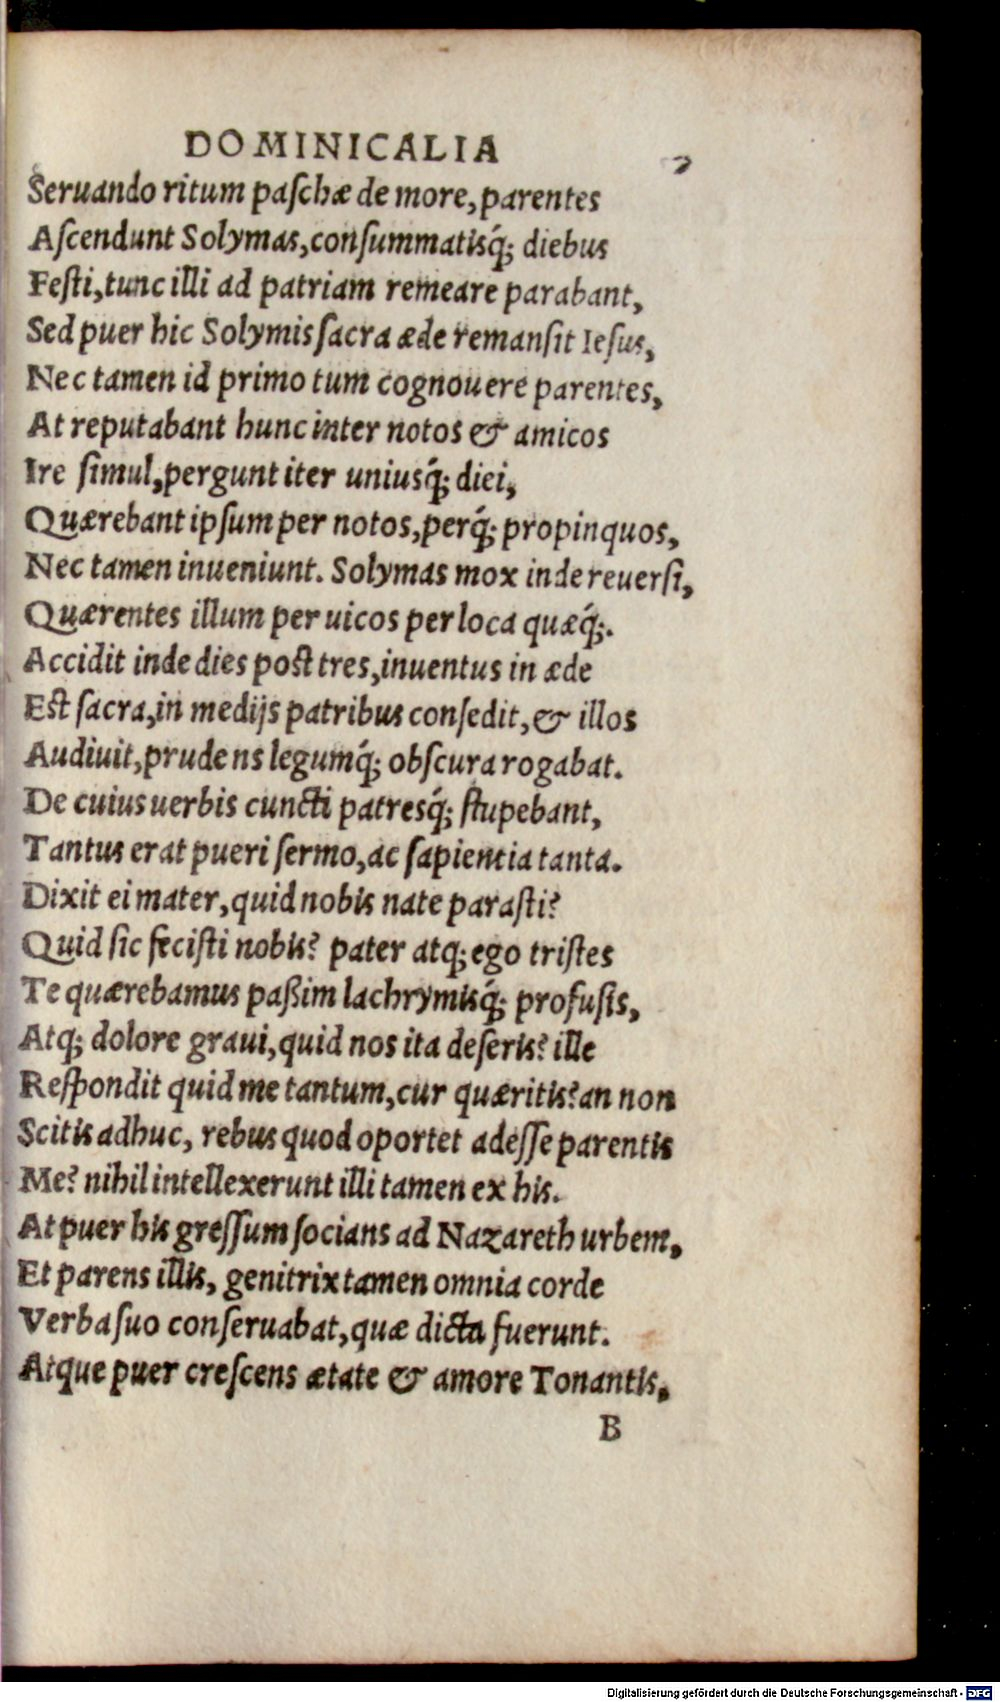 DOMINICALIA
Seruando ritum paſchæ de more, parentes
Aſcendunt Solymas, conſummatisq́; diebus
Feſti, tunc illi ad patriam remeare parabant,
Sed puer hic Solymis ſacra æde remanſit Ieſus,
Nec tamen id primo tum cognouere parentes,
At reputabant hunc inter notos & amicos
Ire ſimul, pergunt iter uniusq́; diei,
Quærebant ipſum per notos, perq́; propinquos,
Nec tamen inueniunt. Solymas mox inde reuerſi,
Quærentes illum per uicos per loca quæq́;.
Accidit inde dies poſt tres, inuentus in æde
Eſt ſacra, in medijs patribus conſedit, & illos
Audiuit, prudens legumq́; obſcura rogabat.
De cuius uerbis cuncti patresq́; ſtupebant,
Tantus erat pueri ſermo, ac ſapientia tanta.
Dixit ei mater, quid nobis nate paraſti?
Quid ſic feciſti nobis? pater atq; ego triſtes
Te quærebamus paßim lachrymisq́; profuſis,
Atq; dolore graui, quid nos ita deſeris? ille
Reſpondit quid me tantum, cur quæritis? an non
Scitis adhuc, rebus quod oportet adeſſe parentis
Me? nihil intellexerunt illi tamen ex his.
At puer his greſſum ſocians ad Nazareth urbem,
Et parens illis, genitrix tamen omnia corde
Verba ſuo conſeruabat, quæ dicta fuerunt.
Atque puer creſcens ætate & amore Tonantis,
B
Digitalisierung gefördert durch die Deutsche Forschungsgemeinschaft - DFG